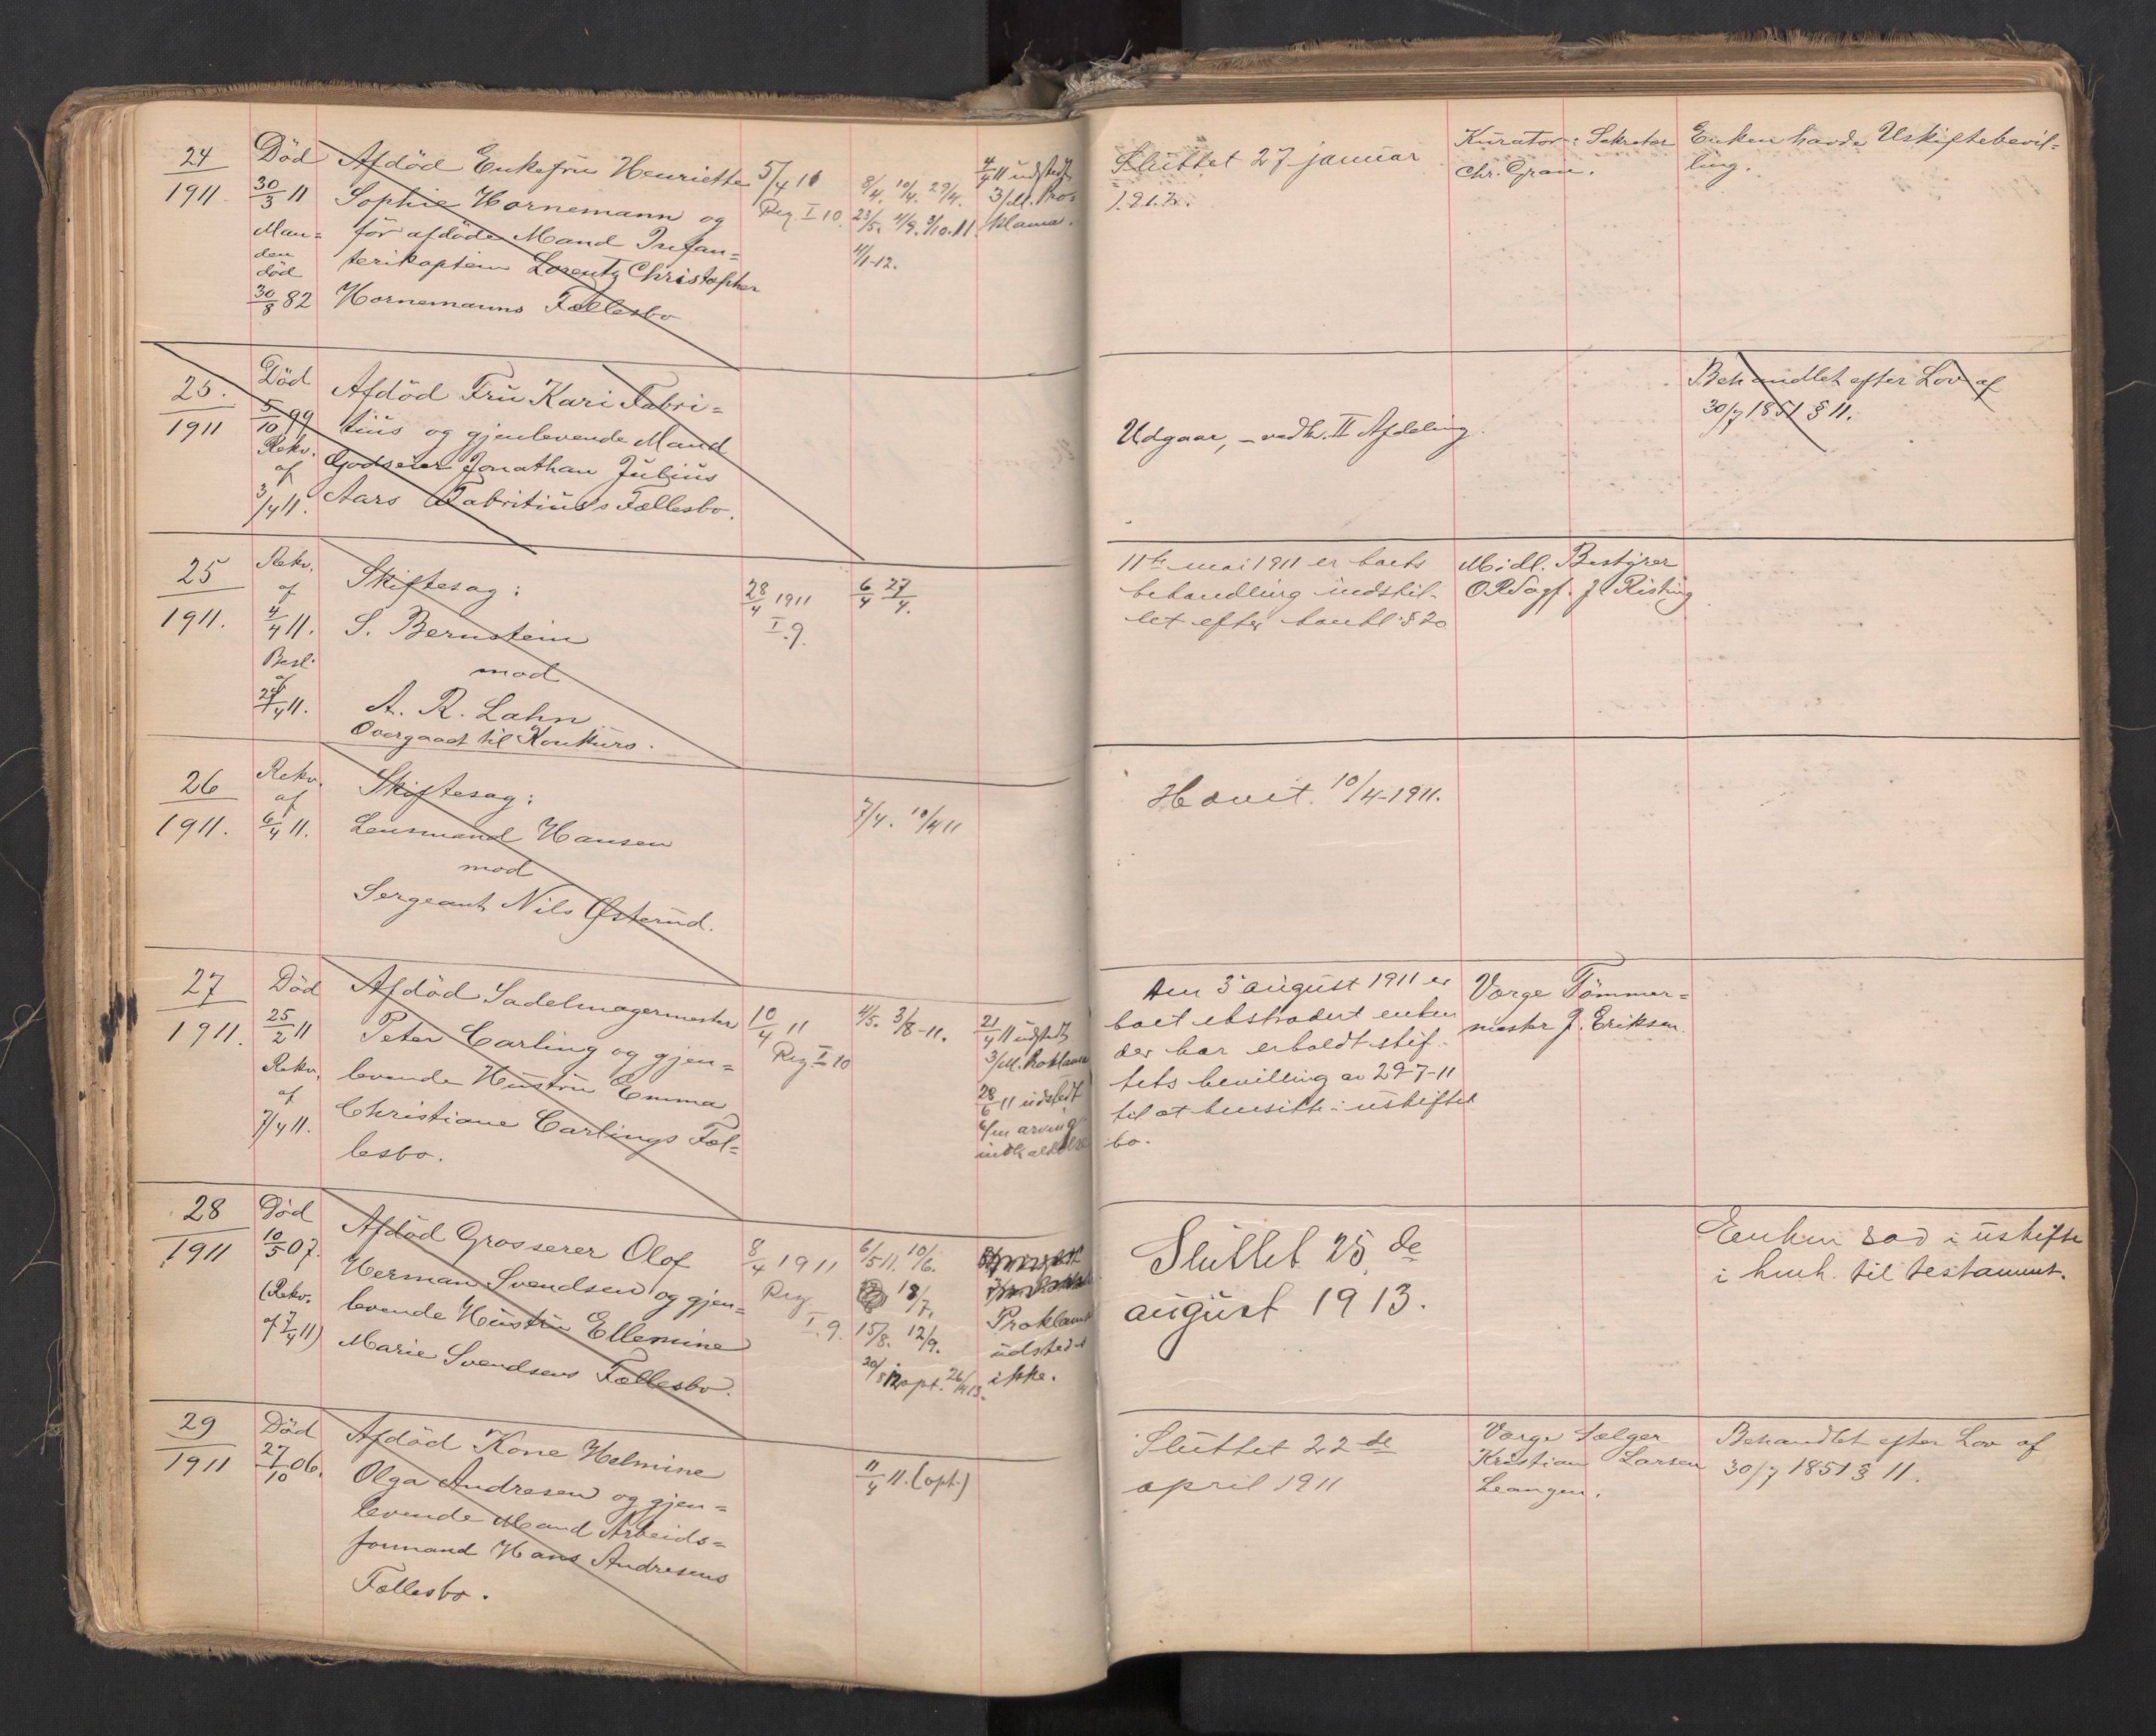 24
1911.
Död
30/3 11
Man=
den
död
30/8 82
Afdöd Enkefru Henriette
Sophie Hornemann og
för afdöde Mand Infan=
terikaptein Lorentz Christopher
Hornemanns Fællesbo
5/4 11
Reg I 10.
8/4. 10/4. 29/4.
23/5. 4/9. 3/10.11.
11/1-12.
4/4 11 udstedt
3/M. Pro=
klama.
Sluttet 27 januar
1912.
Kurator: Sekretær
Chr. Gran.
Enken havde Uskiftebevil=
ling.
25.
1911
Död
5/10 99
Rekv.
af
3/4 11.
Afdöd Fru Kari Fabri=
tius og gjenlevende Mand
Godseier Jonathan Julius
Aars Fabritius's Fællesbo.
Udgaar, – vedk. II Afdeling.
Behandlet efter Lov af
30/7 1851 § 11.
25
1911.
Rekv.
af
4/4 11.
Besl.
af
/4 11.
Skiftesag:
S. Bernstein
mod
A. R. Lahn
Overgaaet til Konkurs.
28/4 1911
I.9.
6/4 27/4.
11te mai 1911 er boets
behandling indstil-
let efter konkl § 20
Midl. Bestyrer
O.R.Sagf. J. Risting
26
1911.
Rekv.
af
6/4 11.
Skiftesag:
Lensmand Hansen
mod
Sergeant Nils Østerud.
7/4. 10/4 11
Hævet. 10/4-1911.
27
1911.
Död
25/2 11
Rekv.
af
7/4 11.
Afdöd Sadelmagermester
Peter Carling og gjen=
levende Hustru Emma
Christiane Carlings Fæl=
lesbo.
10/4 11
Reg I 10
4/5. 3/8-11.
21/4 11 udstedt
3/M. Proklama
28/6 11 udstedt
6/m arving
indkaldelse
Den 3 august 1911 er
boet ekstradert enken
der har erholdt stif-
tets bevilling av 29-7-11
til at hensitte i uskiftet
bo.
Verge Tömmer=
mester J. Eriksen.
28
1911
Död
10/5 07.
(Rekv.
af 7/4 11)
Afdöd Grosserer Olof
Herman Svendsen og gjen=
levende Hustru Ellemine
Marie Svendsens Fællesbo.
8/4 1911
Reg
I.9.
6/5 11. 10/6.
18/7.
15/8. 12/9.
20/8 12 opt. 26/4 13.
Proklama
udstedes
ikke.
Sluttet 25de
august 1913.
Enken sad i uskifte
i henh. til testament.
29
1911
Död
27/10 06.
Afdöd Kone Helmine
Olga Andresen og gjen=
levende Mand Arbeids=
formand Hans Andresens
Fællesbo.
11/4 11. (opt.)
Sluttet 22de
april 1911
Verge Sælger
Kristian Larsen
Leangen.
Behandlet efter Lov af
30/7 1851 § 11.